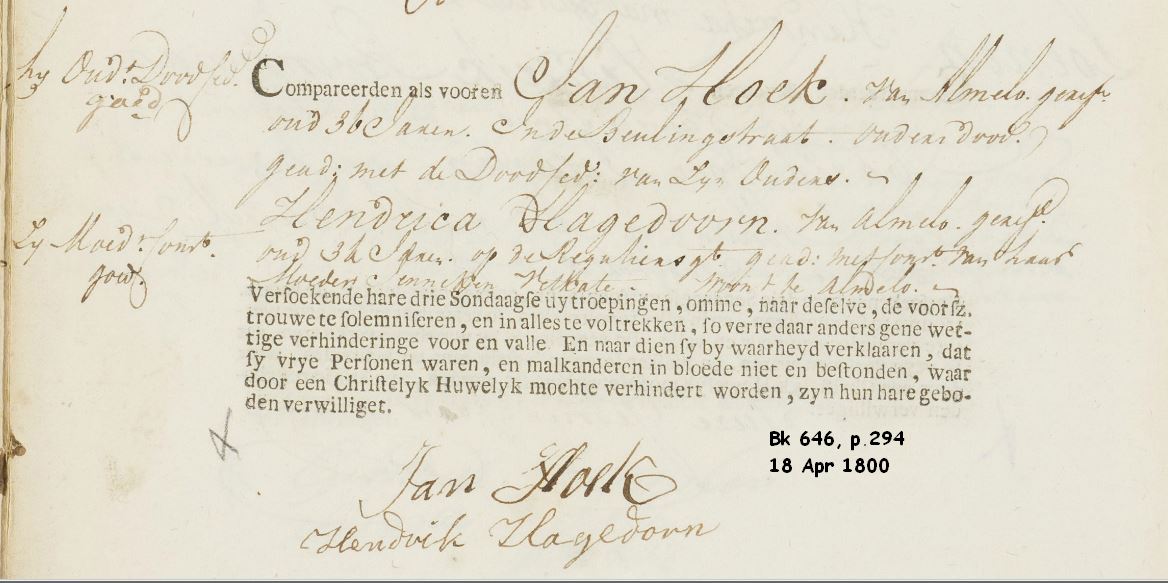 hy Oud.s Doodsed.
goed
Compareerden als vooren Jan Hoek. Van Almelo. geref.
oud 36 Jaren. In de Beulingstraat. ouders dood.
gead: met de Doodsed: van Zyn Ouders.
Hendrica Hagedoorn. Van Almelo. geref.
Zy Moed.r Const.
goed.
oud 34 Jaren. op de Reguliersgt. gead: met Const. van haar
Moeder Jenneken Velkate. woont te Almelo.
Versoekende hare drie Sondaagse uytroepingen, omme, naar deselve, de voorsz.
trouwe te solemniseren, en in alles te voltrekken, so verre daar anders gene wet-
tige verhinderinge voor en valle. En naar dien sy by waarheyd verklaaren, dat
sy vrye Personen waren, en malkanderen in bloede niet en bestonden, waar
door een Christelyk Huwelyk mochte verhindert worden, zyn hun hare gebo-
den verwilliget.
Bk 646, p.294
18 Apr 1800
Jan Hoek
Hendrik Hagedorn